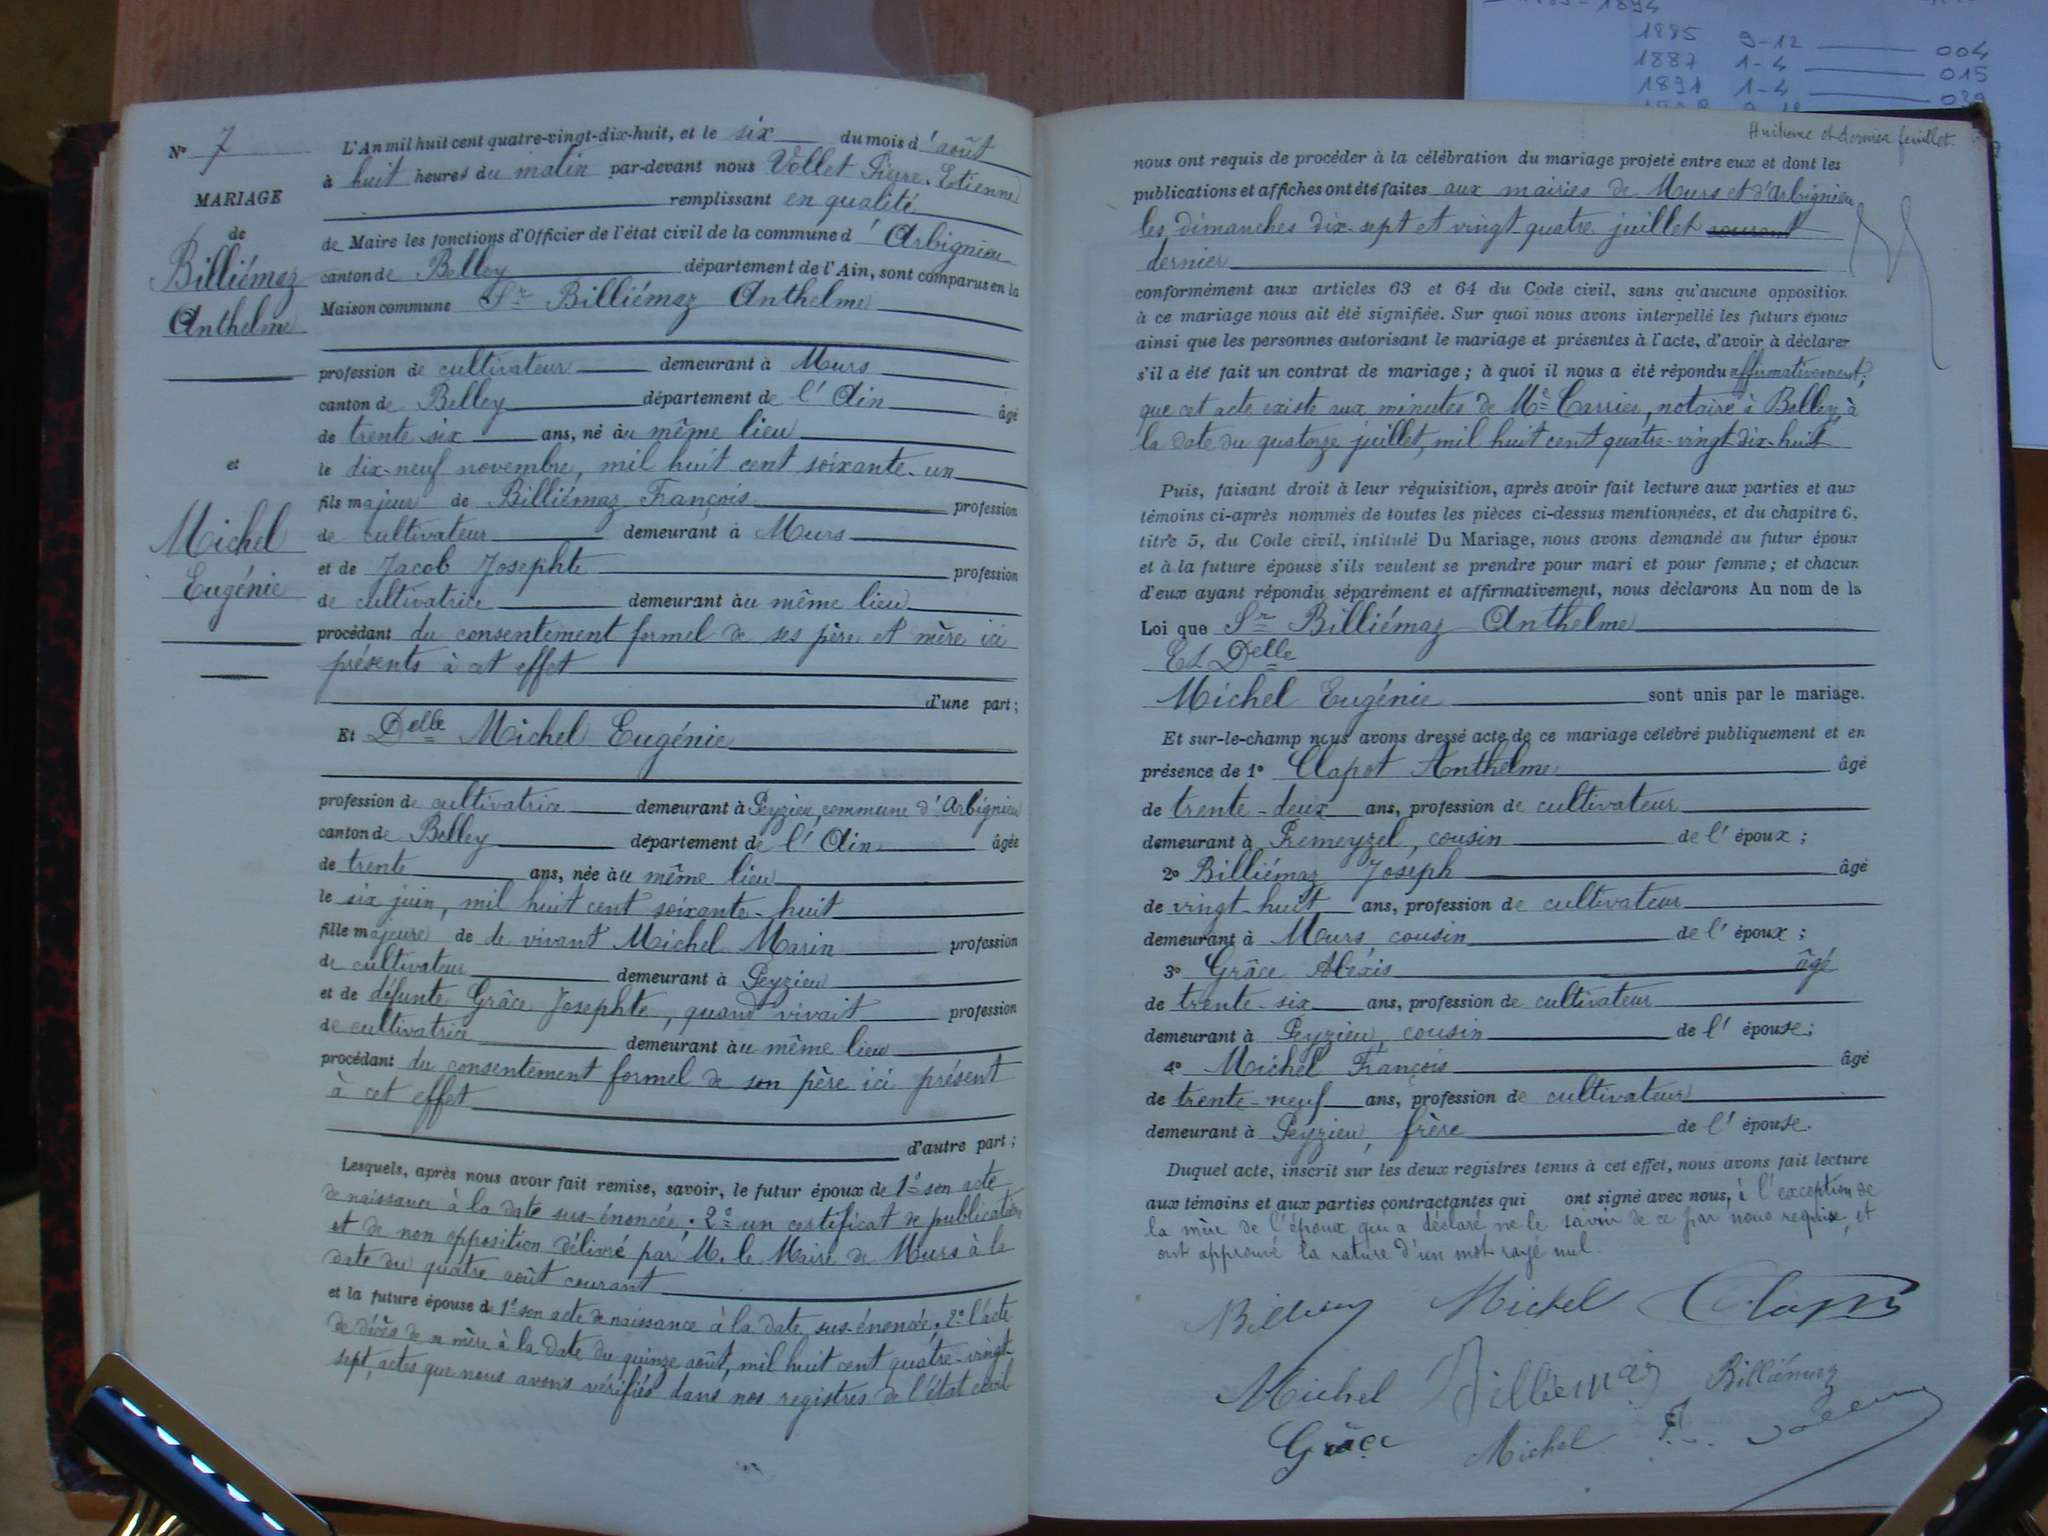 1885 9-12 004
1887 1-4 015
1891 1-4 039
N° 7
MARIAGE
de
Billiémaz
Anthelme
et
Michel
Eugénie
L'An mil huit cent quatre-vingt-dix-huit, et le six du mois d'août
à huit heures du matin par-devant nous Vollet Pierre-Etienne
remplissant en qualité
de Maire les fonctions d'Officier de l'état civil de la commune d'Arbignieu
canton de Belley département de l'Ain, sont comparus en la
Maison commune Sr Billiémaz Anthelme
profession de cultivateur demeurant à Murs
canton de Belley département de l'Ain âgé
de trente-six ans, né au même lieu
le dix-neuf novembre, mil huit cent soixante-un
fils majeur de Billiémaz François profession
de cultivateur demeurant à Murs
et de Jacob Josephte profession
de cultivatrice demeurant au même lieu
procédant du consentement formel de ses père et mère ici
présents à cet effet
d'une part;
Et Delle Michel Eugénie
profession de cultivatrice demeurant à Peyzieu, commune d'Arbignieu
canton de Belley département de l'Ain âgée
de trente ans, née au même lieu
le six juin, mil huit cent soixante-huit
fille majeure de de vivant Michel Marin profession
de cultivateur demeurant à Peyzieu
et de défunte Grâce Josephte, quand vivait profession
de cultivatrice demeurant au même lieu
procédant du consentement formel de son père ici présent
à cet effet
d'autre part;
Lesquels, après nous avoir fait remise, savoir, le futur époux de 1° son acte
de naissance à la date sus-énoncée; 2° un certificat de publication
et de non opposition délivré par M. le Maire de Murs à la
date du quatre août courant
et la future épouse de 1° son acte de naissance à la date sus-énoncée; 2° l'acte
de décès de sa mère à la date du quinze août, mil huit cent quatre-vingt-
sept, actes que nous avons vérifiés dans nos registres de l'état civil
Huitième et dernier feuillet.
nous ont requis de procéder à la célébration du mariage projeté entre eux et dont les
publications et affiches ont été faites aux mairies de Murs et d'Arbignieu
les dimanches dix-sept et vingt quatre juillet courant
dernier
conformément aux articles 63 et 64 du Code civil, sans qu'aucune opposition
à ce mariage nous ait été signifiée. Sur quoi nous avons interpellé les futurs époux
ainsi que les personnes autorisant le mariage et présentes à l'acte, d'avoir à déclarer
s'il a été fait un contrat de mariage; à quoi il nous a été répondu affirmativement;
que cet acte existe aux minutes de Me Carrier, notaire à Belley, à
la date du quatorze juillet, mil huit cent quatre-vingt dix-huit
Puis, faisant droit à leur réquisition, après avoir fait lecture aux parties et aux
témoins ci-après nommés de toutes les pièces ci-dessus mentionnées, et du chapitre 6,
titre 5, du Code civil, intitulé Du Mariage, nous avons demandé au futur époux
et à la future épouse s'ils veulent se prendre pour mari et pour femme; et chacun
d'eux ayant répondu séparément et affirmativement, nous déclarons Au nom de la
Loi que Sr Billiémaz Anthelme
Et Delle
Michel Eugénie sont unis par le mariage.
Et sur-le-champ nous avons dressé acte de ce mariage célébré publiquement et en
présence de 1° Clapot Anthelme âgé
de trente-deux ans, profession de cultivateur
demeurant à Premeyzel, cousin de l'époux;
2° Billiémaz Joseph âgé
de vingt-huit ans, profession de cultivateur
demeurant à Murs, cousin de l'époux;
3° Grâce Aléxis âgé
de trente-six ans, profession de cultivateur
demeurant à Peyzieu, cousin de l'épouse;
4° Michel François âgé
de trente-neuf ans, profession de cultivateur
demeurant à Peyzieu, frère de l'épouse.
Duquel acte, inscrit sur les deux registres tenus à cet effet, nous avons fait lecture
aux témoins et aux parties contractantes qui ont signé avec nous, à l'exception de
la mère de l'époux qui a déclaré ne le savoir de ce par nous requise, et
ont approuvé la rature d'un mot rayé nul.
Michel
Michel Billiemaz Billiémaz
Grâce Michel